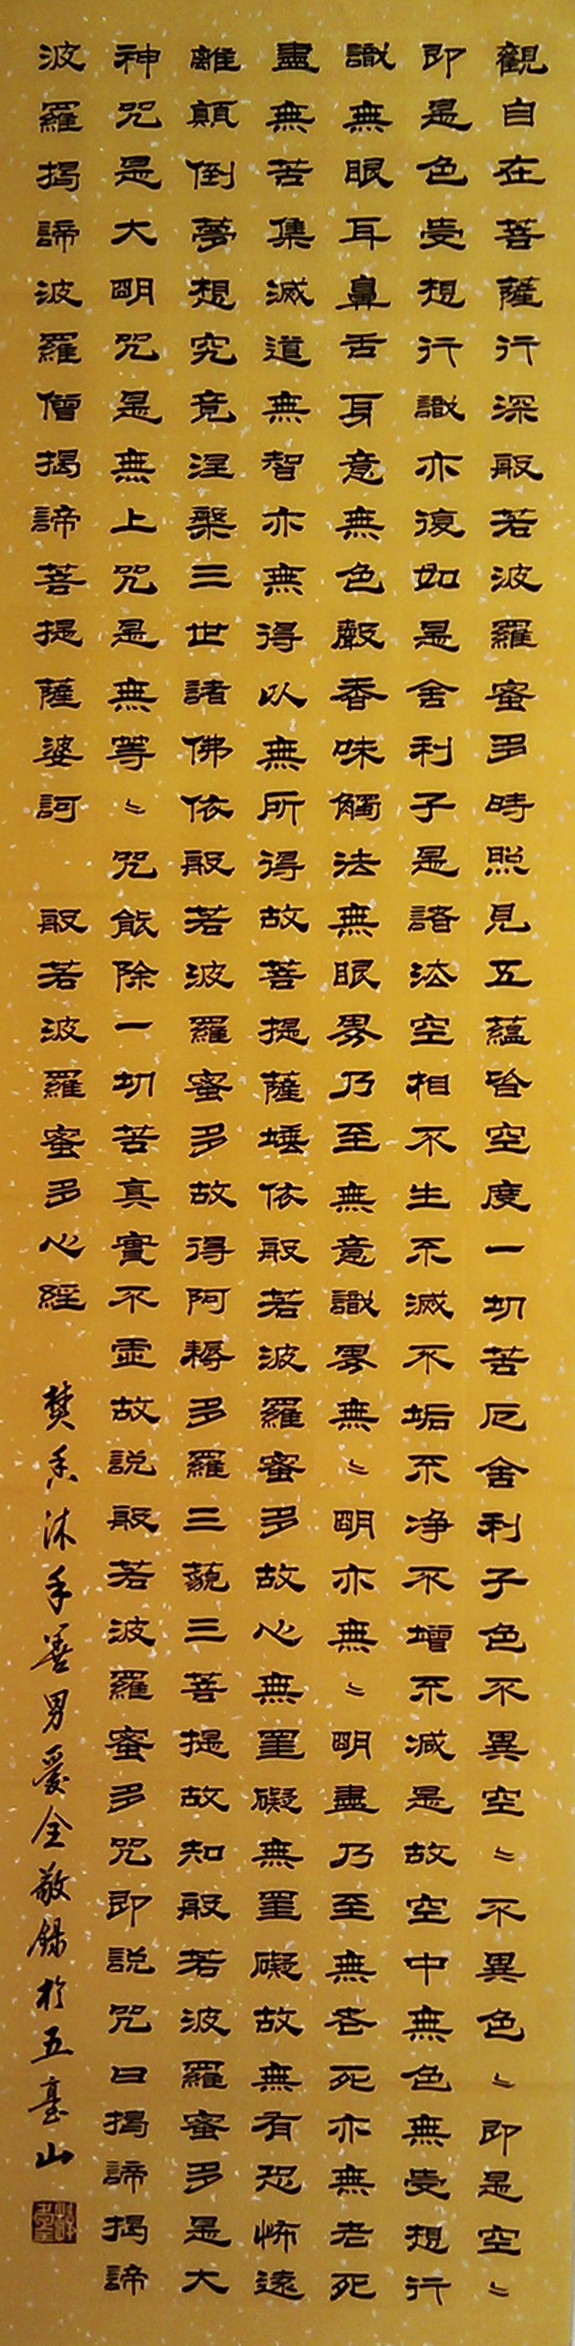 觀自在菩薩行深般若波羅蜜多時照見五蘊皆空度一切苦厄舍利子色不異空〻不異色〻即是空〻
即是色受想行識亦復如是舍利子是諸法空相不生不滅不垢不净不增不減是故空中無色無受想行
識無眼耳鼻舌身意無色聲香味觸法無眼界乃至無意識界無〻明亦無〻明盡乃至無老死亦無老死
盡無苦集滅道無智亦無得以無所得故菩提薩埵依般若波羅蜜多故心無罣礙無罣礙故無有恐怖遠
離顛倒夢想究竟涅槃三世諸佛依般若波羅蜜多故得阿耨多羅三藐三菩提故知般若波羅蜜多是大
神咒是大明咒是無上咒是無等〻咒能除一切苦真實不虛故説般若波羅蜜多咒即説咒曰揭諦揭諦
波羅揭諦波羅僧揭諦菩提薩婆訶 般若波羅蜜多心經 焚香沐手善男愛全敬錄於五臺山